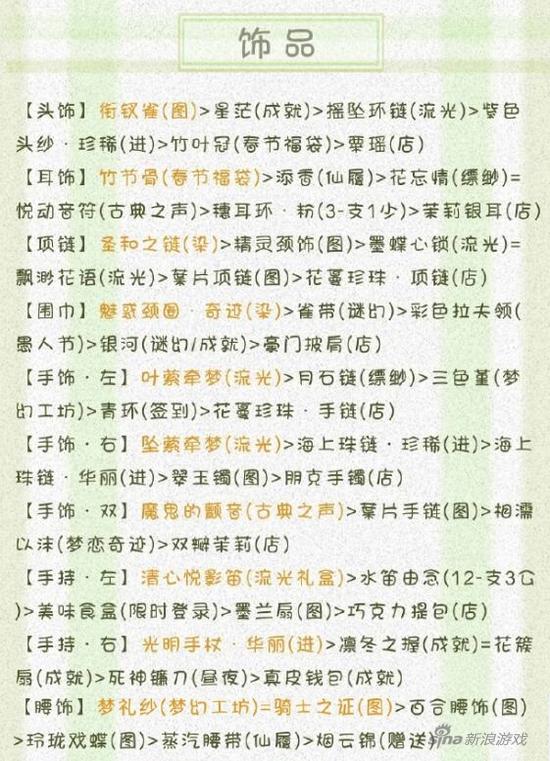 饰品
【头饰】衔钗雀(图)>星茫(成就)>摇坠环链(流光)>紫色
头纱·珍稀(进)>竹叶冠(春节福袋)>栗瑶(店)
【耳饰】竹节骨(春节福袋)>添香(仙履)>花忘情(缥缈)=
悦动音符(古典之声)>穗耳环·粉(3-支1少)>茉莉银耳(店)
【项链】圣和之链(染)>精灵颈饰(图)>墨蝶心锁(流光)=
飘渺花语(流光)>葉片项链(图)>花蔓珍珠·项链(店)
【围巾】魅惑颈圈·奇迹(染)>雀带(谜幻)>彩色拉夫领(
愚人节)>银河(谜幻/成就)>豪门披肩(店)
【手饰·左】叶萦牵梦(流光)>月石链(缥缈)>三色堇(梦
幻工坊)>青环(签到)>花蔓珍珠·手链(店)
【手饰·右】坠萦牵梦(流光)>海上珠链·珍稀(进)>海上
珠链·华丽(进)>翠玉镯(图)>朋克手镯(店)
【手饰·双】魔鬼的颤音(古典之声)>葉片手链(图)>相濡
以沫(梦恋奇迹)>双瓣茉莉(店)
【手持·左】清心悦影笛(流光礼盒)>水笛由念(12-支3公
)>美味食盒(限时登录)>墨兰扇(图)>巧克力提包(店)
【手持·右】光明手杖·华丽(进)>凛冬之握(成就)=花簇
扇(成就)>死神镰刀(昼夜)>真皮钱包(成就)
【腰饰】梦礼纱(梦幻工坊)=骑士之证(图)>百合腰饰(图)
>玲珑戏蝶(图)>蒸汽腰带(仙履)>烟云锦(赠送)
sina新浪游戏